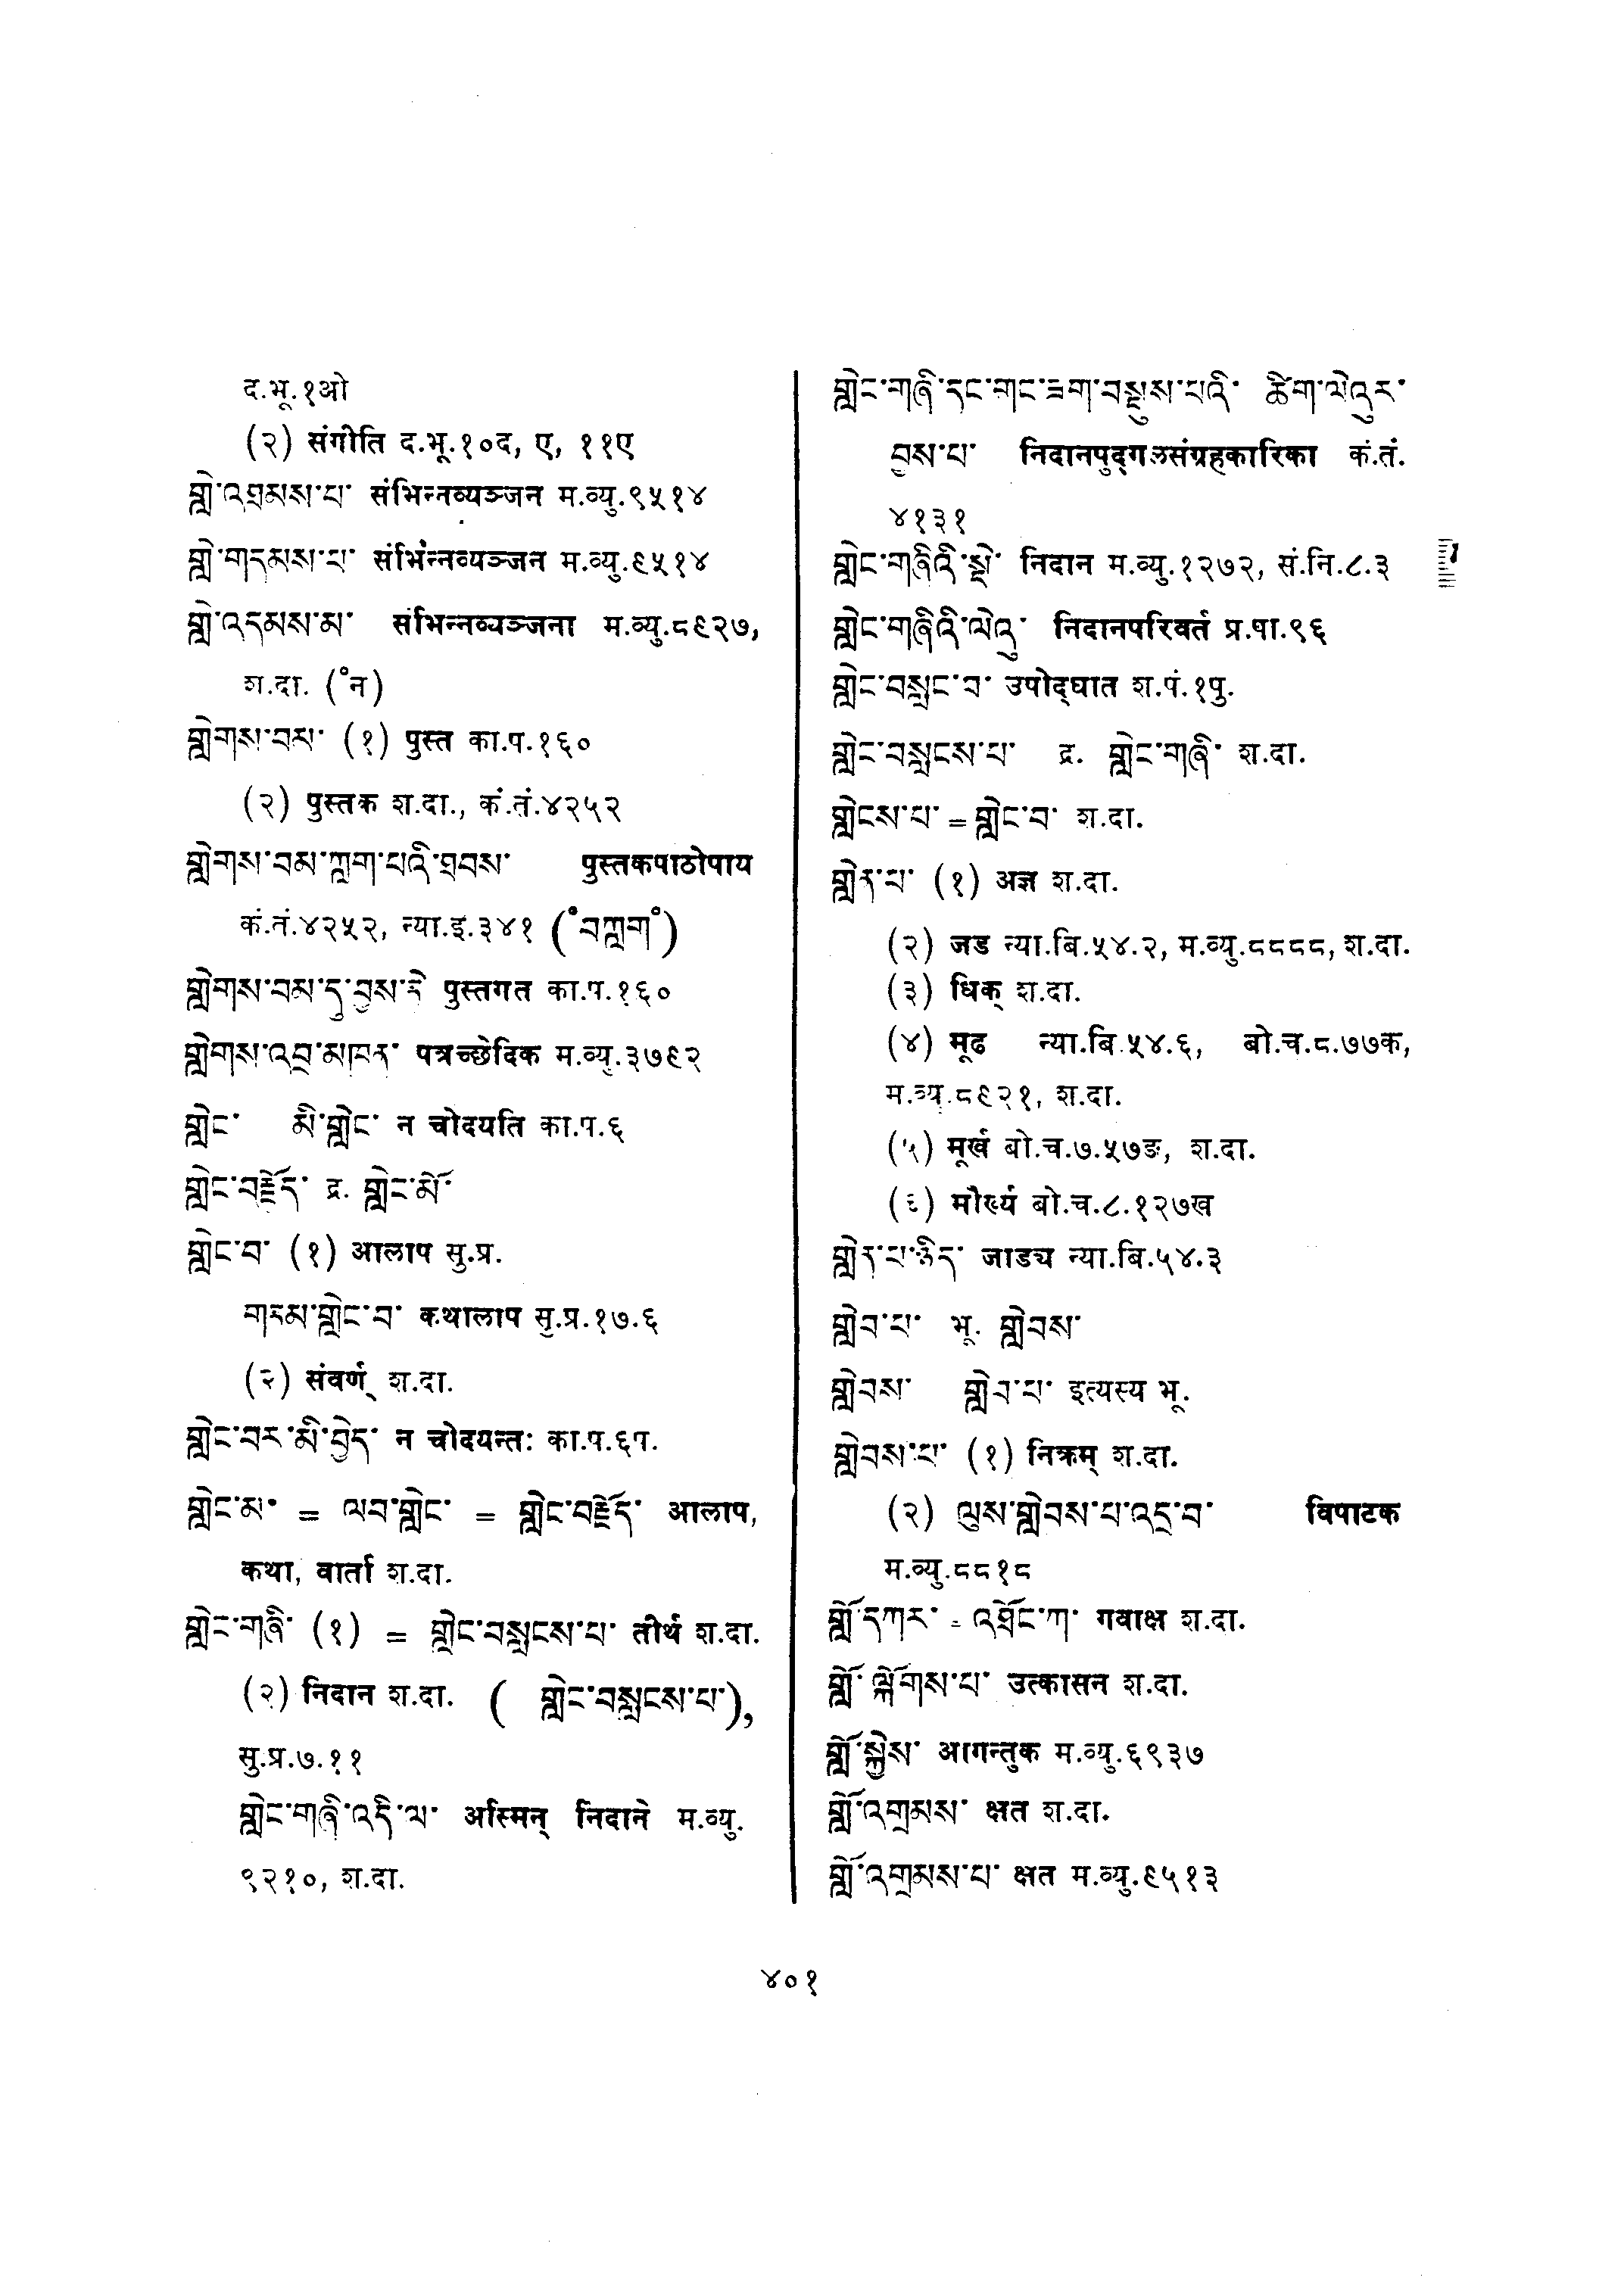 द.भू.१ओ
(२) संगीति द.भू.१०द, ए, ११ए
གླེ་འགྲམས་པ་ संभिन्नव्यञ्जन म.व्यु.९५१४
གླེ་གདམས་པ་ संभिन्नव्यञ्जन म.व्यु.९५१४
གླེ་འདམས་མ་ संभिन्नव्यञ्जना म.व्यु.८९२७,
श.दा. (°न)
གླེགས་བམ་ (१) पुस्त का.प.१६०
(२) पुस्तक श.दा., कं.तं.४२५२
གླེགས་བམ་ཀླག་པའི་ཐབས་ पुस्तकपाठोपाय
कं.तं.४२५२, न्या.इ.३४१ (°བཀླག°)
གླེགས་བམ་དུ་བྱས་ཏེ पुस्तगत का.प.१६०
གླེགས་འབྲ་མཁན་ पत्रच्छेदिक म.व्यु.३७९२
གླེང་ མི་གླེང་ न चोदयति का.प.६
གླེང་བརྗོད་ द्र. གླེང་མོ་
གླེང་བ་ (१) आलाप सु.प्र.
གཏམ་གླེང་བ་ कथालाप सु.प्र.१७.६
(२) संवर्ण् श.दा.
གླེང་བར་མི་བྱེད་ न चोदयन्तः का.प.६१.
གླེང་མ་ = ལབ་གླེང་ = གླེང་བརྗོད་ आलाप,
कथा, वार्ता श.दा.
གླེང་གཞི་ (१) = གླེང་བསླངས་པ་ तीर्थ श.दा.
(२) निदान श.दा. ( གླེང་བསླངས་པ་),
सु.प्र.७.११
གླེང་གཞི་འདི་ལ་ अस्मिन् निदाने म.व्यु.
९२१०, श.दा.
གླེང་གཞི་དང་གང་ཟག་བསྡུས་པའི་ ཚིག་ལེའུར་
བྱས་པ་ निदानपुद्गलसंग्रहकारिका कं.तं.
४१३१
གླེང་གཞིའི་སྡེ་ निदान म.व्यु.१२७२, सं.नि.८.३
གླེང་གཞིའི་ལེའུ་ निदानपरिवर्त प्र.पा.९६
གླེང་བསླང་བ་ उपोद्घात श.पं.१पु.
གླེང་བསླངས་པ་ द्र. གླེང་གཞི་ श.दा.
གླེངས་པ་ = གླེང་བ་ श.दा.
གླེན་པ་ (१) अज्ञ श.दा.
(२) जड न्या.बि.५४.२, म.व्यु.८८८८, श.दा.
(३) धिक् श.दा.
(४) मूढ न्या.बि.५४.६, बो.च.८.७७क,
म.व्यु.८९२१, श.दा.
(५) मूर्ख बो.च.७.५७ङ, श.दा.
(६) मौर्ख्य बो.च.८.१२७ख
གླེན་པ་ཉིད་ जाड्य न्या.बि.५४.३
གླེབ་པ་ भू. གླེབས་
གླེབས་ གླེབ་པ་ इत्यस्य भू.
གླེབས་པ་ (१) निक्रम् श.दा.
(२) ལུས་གླེབས་པ་འདྲ་བ་ विपाटक
म.व्यु.८८१८
གློ་དཀར་ = འཕྲོང་ཀ་ गवाक्ष श.दा.
གློ་ལྐོགས་པ་ उत्कासन श.दा.
གློ་སྐྱེས་ आगन्तुक म.व्यु.६९३७
གློ་འགྲམས་ क्षत श.दा.
གློ་འགྲམས་པ་ क्षत म.व्यु.९५१३
४०१